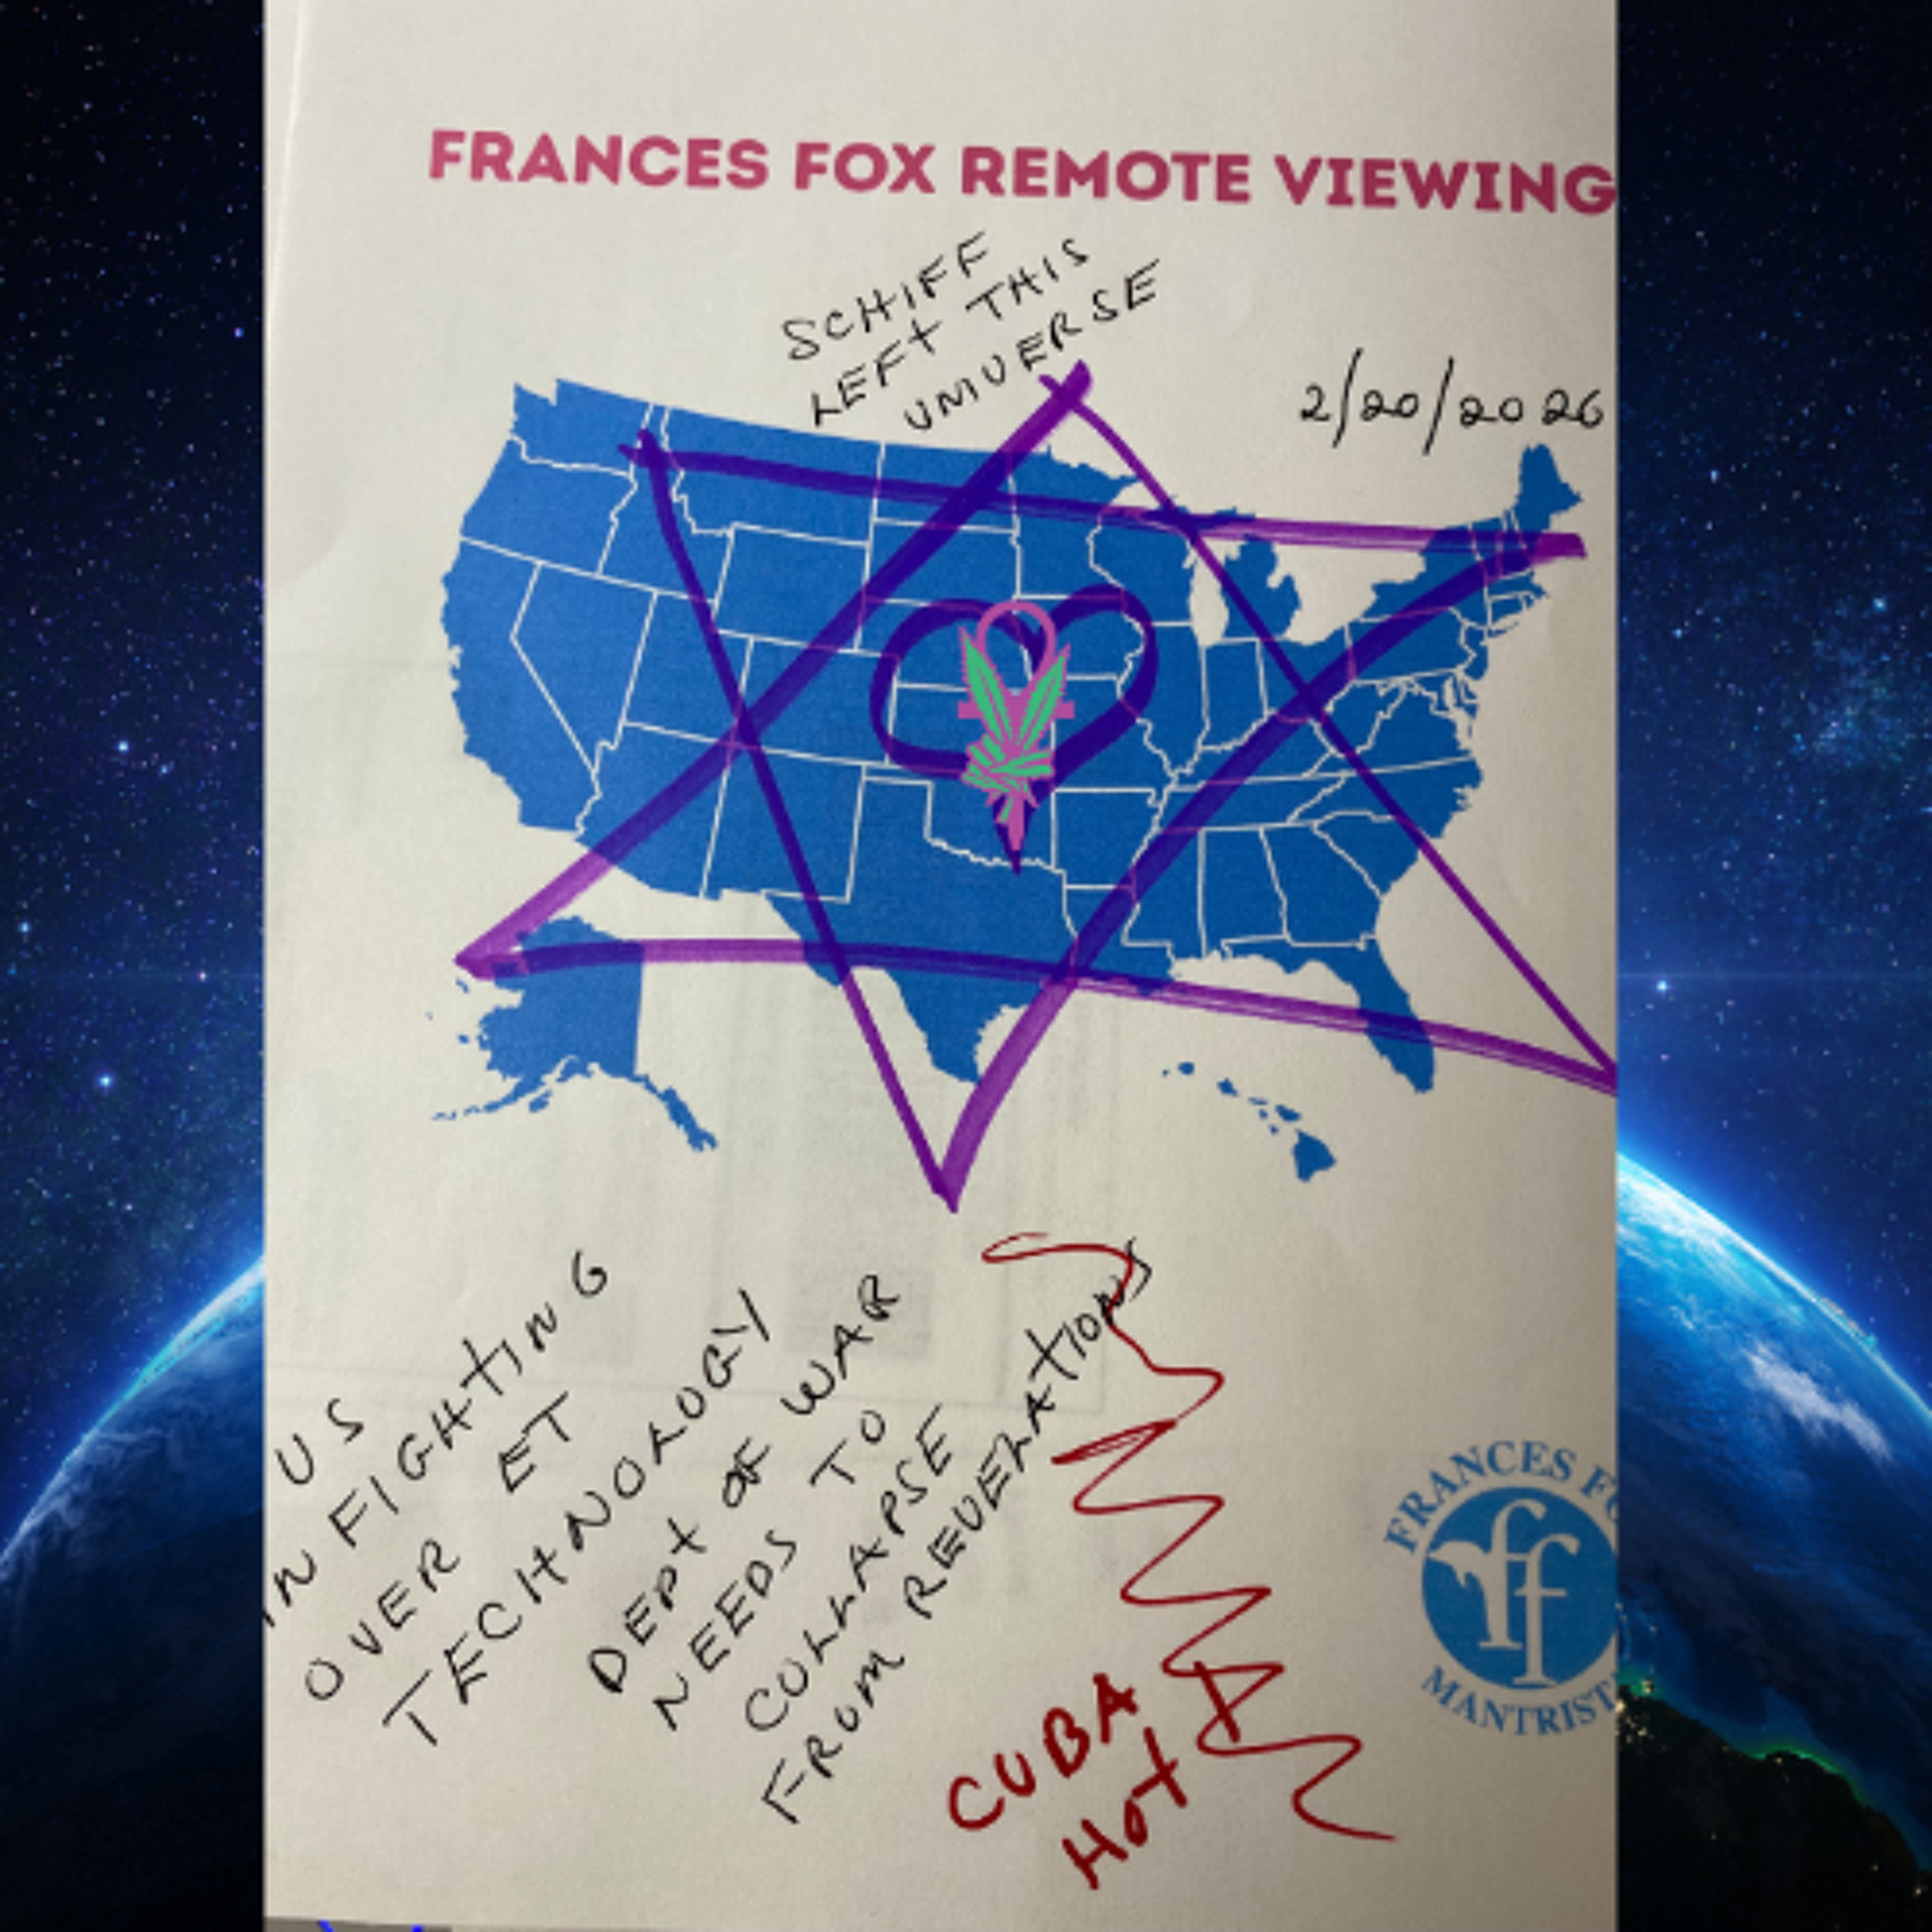 FRANCES FOX REMOTE VIEWING
SCHIFF
LEFT THIS
UNIVERSE
2/20/2026
US
IN FIGHTING
OVER ET
TECHNOLOGY
DEPT OF WAR
NEEDS TO
COLLAPSE
FROM REVELATIONS
CUBA
HOT
FRANCES FO
ff
MANTRIST